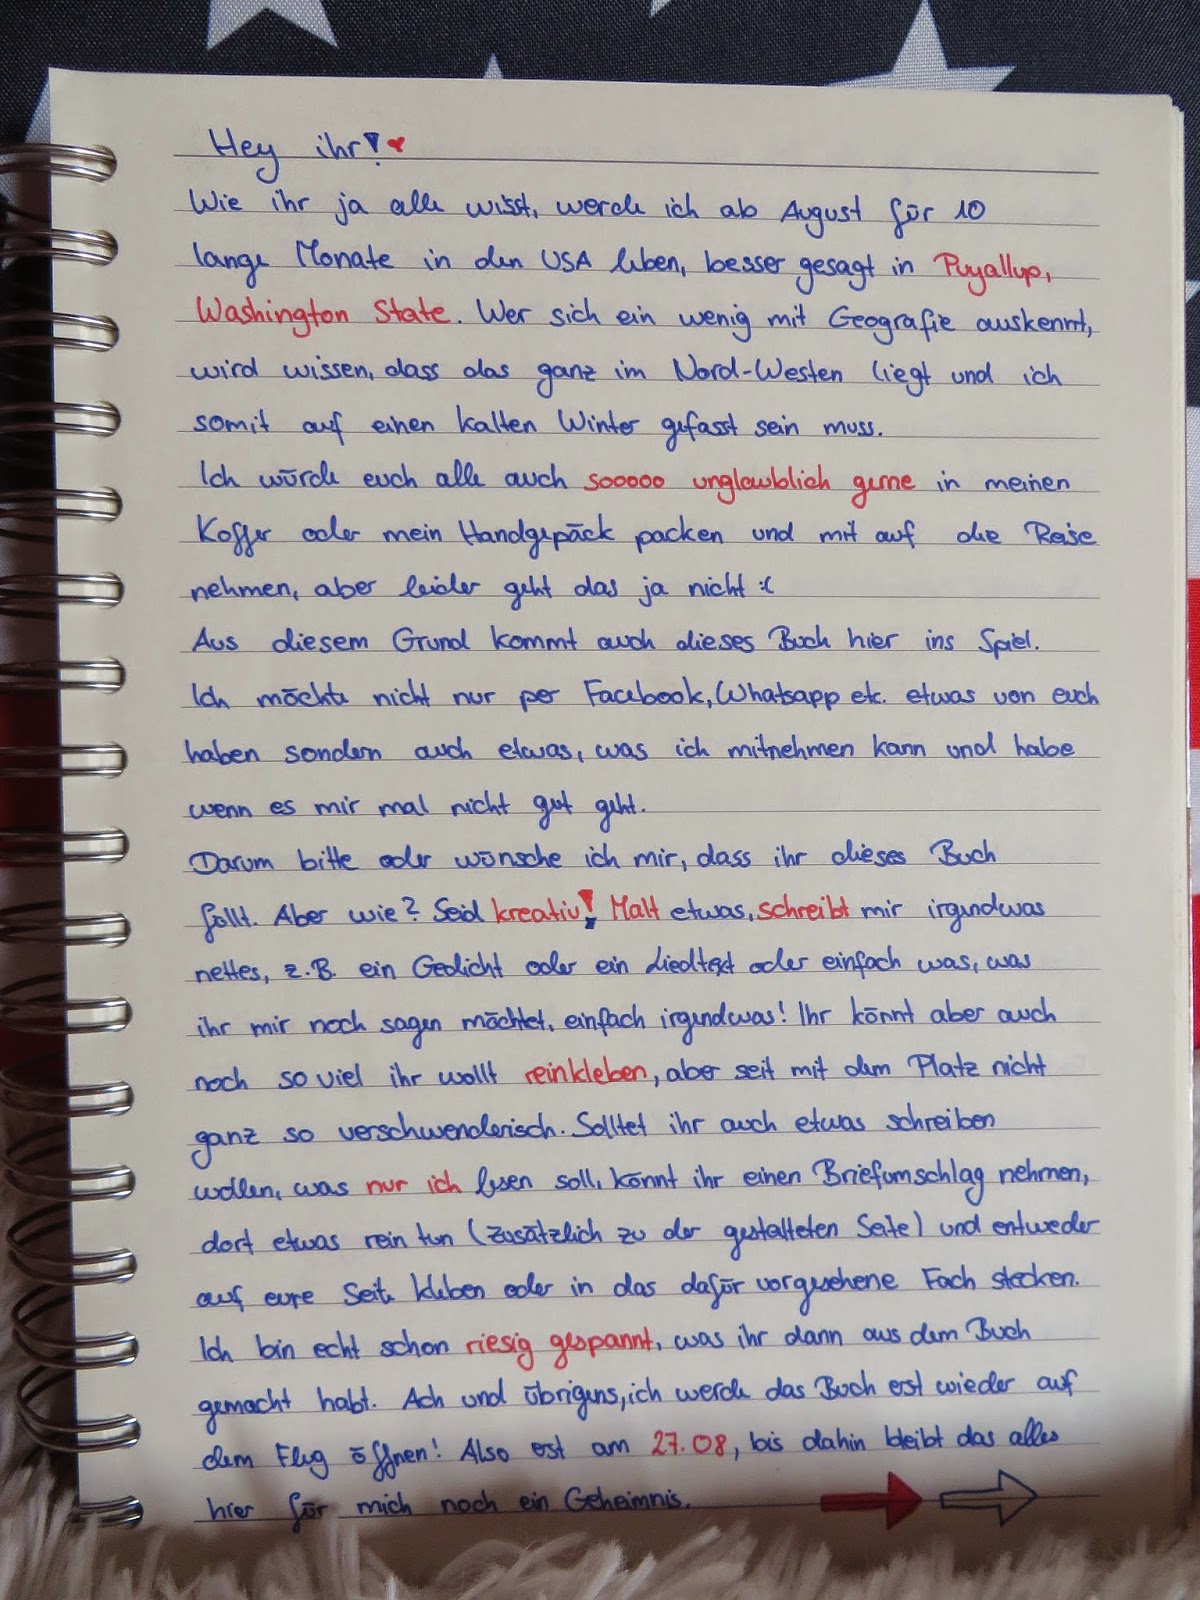 Hey ihr! ♥
Wie ihr ja alle wisst, werde ich ab August für 10
lange Monate in den USA leben, besser gesagt in Puyallup,
Washington State. Wer sich ein wenig mit Geografie auskennt,
wird wissen, dass das ganz im Nord-Westen liegt und ich
somit auf einen kalten Winter gefasst sein muss.
Ich würde euch alle auch sooooo unglaublich gerne in meinen
Koffer oder mein Handgepäck packen und mit auf die Reise
nehmen, aber leider geht das ja nicht :(
Aus diesem Grund kommt auch dieses Buch hier ins Spiel.
Ich möchte nicht nur per Facebook, Whatsapp etc. etwas von euch
haben sondern auch etwas, was ich mitnehmen kann und habe
wenn es mir mal nicht gut geht.
Darum bitte oder wünsche ich mir, dass ihr dieses Buch
füllt. Aber wie? Seid kreativ! Malt etwas, schreibt mir irgendwas
nettes, z.B. ein Gedicht oder ein Liedtext oder einfach was, was
ihr mir noch sagen möchtet, einfach irgendwas! Ihr könnt aber auch
noch so viel ihr wollt reinkleben, aber seit mit dem Platz nicht
ganz so verschwenderisch. Solltet ihr auch etwas schreiben
wollen, was nur ich lesen soll, könnt ihr einen Briefumschlag nehmen,
dort etwas rein tun (zusätzlich zu der gestalteten Seite) und entweder
auf eure Seite kleben oder in das dafür vorgesehene Fach stecken.
Ich bin echt schon riesig gespannt, was ihr dann aus dem Buch
gemacht habt. Ach und übrigens, ich werde das Buch erst wieder auf
dem Flug öffnen! Also erst am 27.08, bis dahin bleibt das alles
hier für mich noch ein Geheimnis.